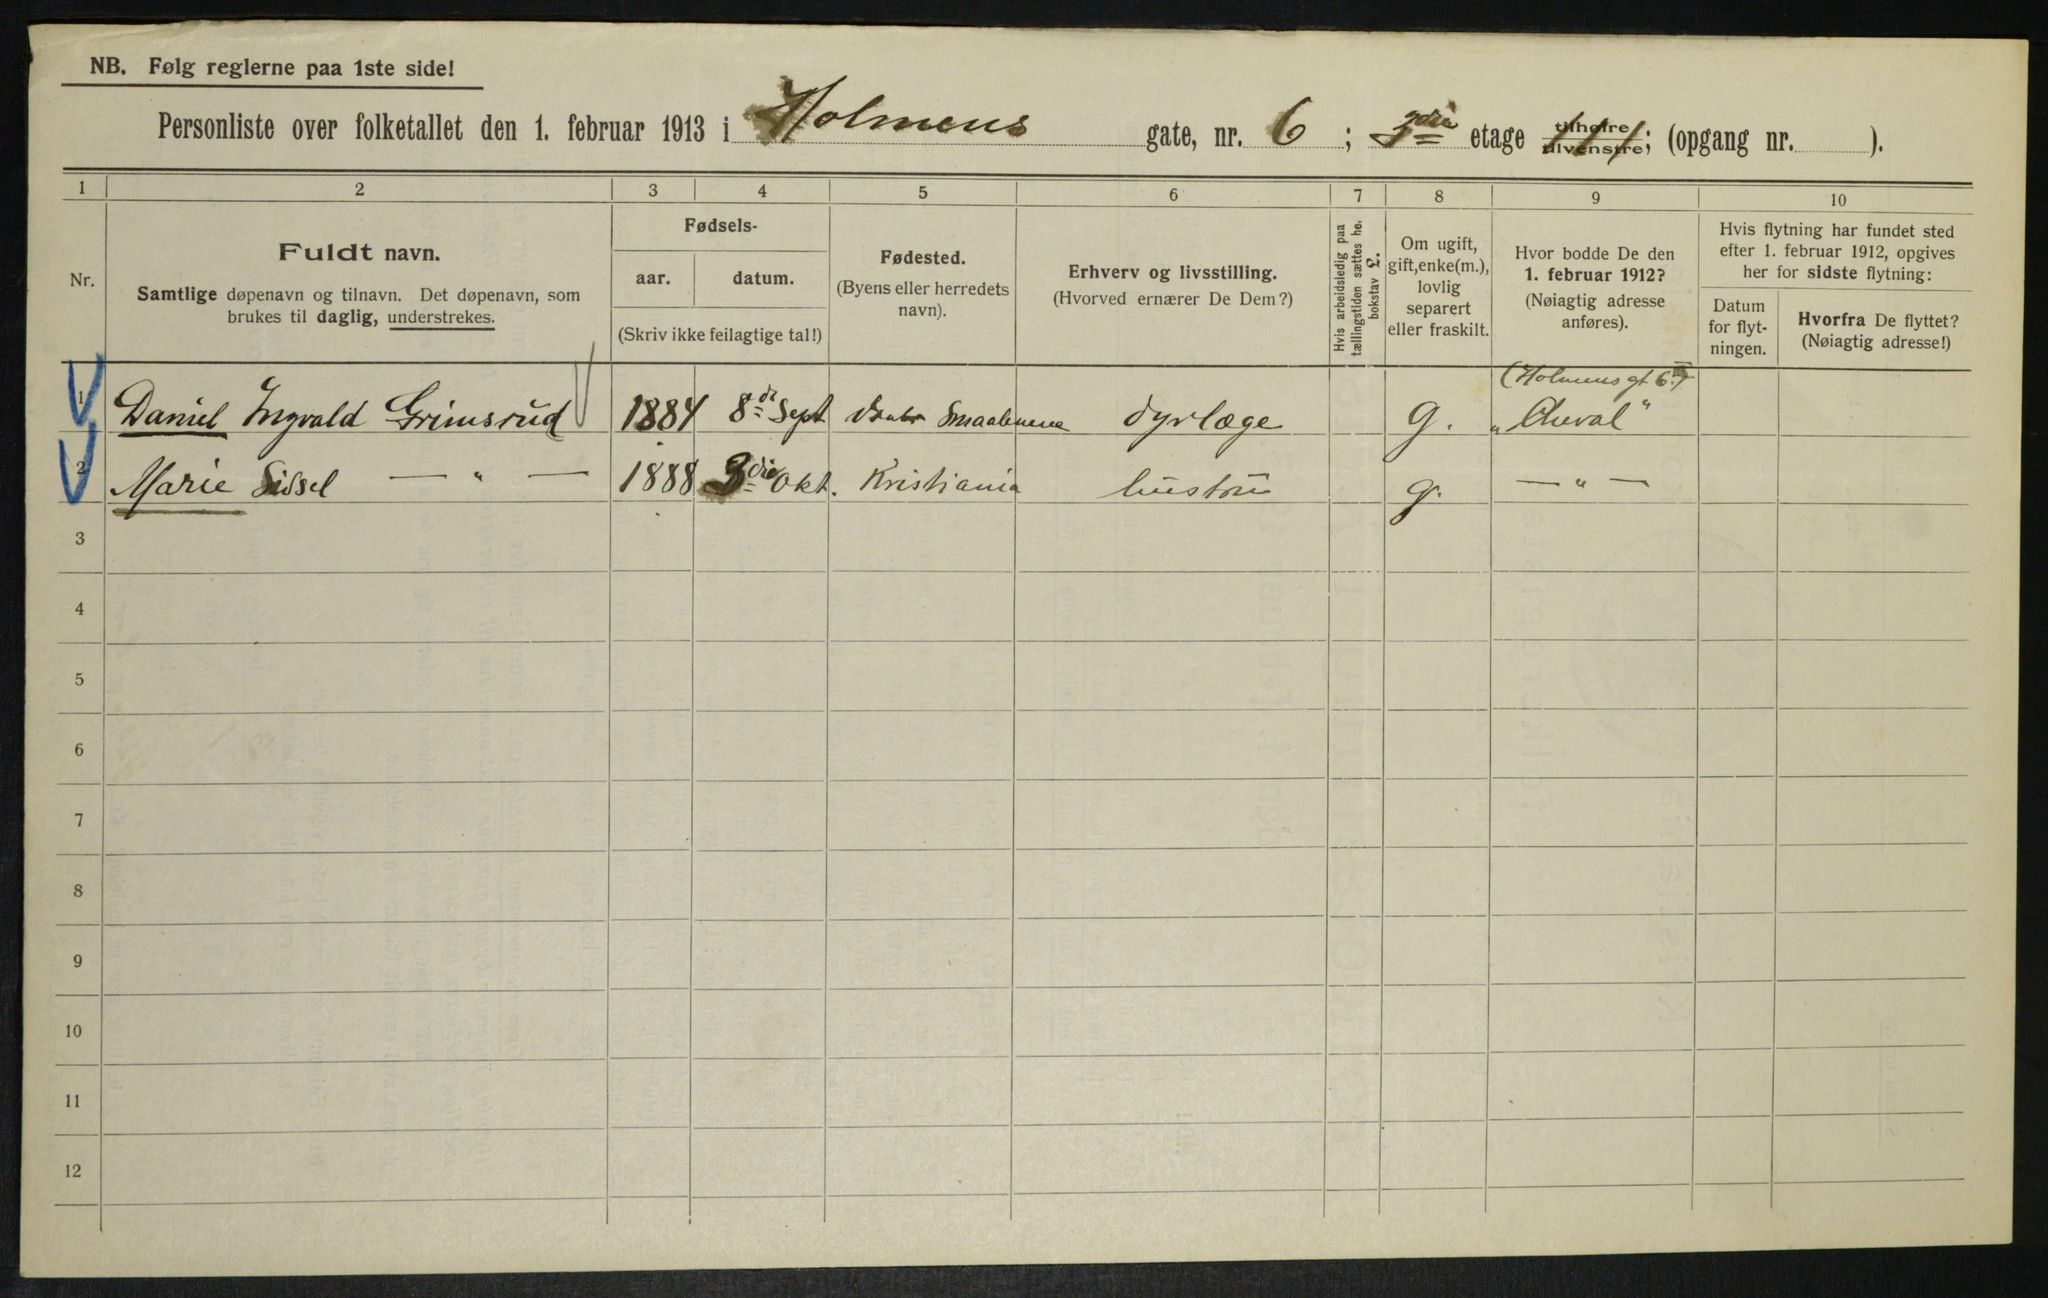 NB. Følg reglerne paa 1ste side!
Personliste over folketallet den 1. februar 1913 i Holmens gate, nr. 6 ; 3die etage tilhøire tilvenstre; (opgang nr. ).
1 2 3 4 5 6 7 8 9 10
Nr.
Fuldt navn.
Samtlige døpenavn og tilnavn. Det døpenavn, som
brukes til daglig, understrekes.
Fødsels-
aar. datum.
(Skriv ikke feilagtige tal!)
Fødested.
(Byens eller herredets
navn).
Erhverv og livsstilling.
(Hvorved ernærer De Dem?)
Hvis arbeidsledig paa
tællingstiden sættes he.
bokstav L.
Om ugift,
gift, enke(m.),
lovlig
separert
eller fraskilt.
Hvor bodde De den
1. februar 1912?
(Nøiagtig adresse
anføres).
Hvis flytning har fundet sted
efter 1. februar 1912, opgives
her for sidste flytning:
Datum
for flyt-
ningen.
Hvorfra De flyttet?
(Nøiagtig adresse!)
(Holmens gt 6.)
1 Daniel Ingvald Grimsrud 1884 8de Sept Smaalenene dyrlæge g. "Cheval"
2 Marie Sissel — " — 1888 3die Okt. Kristiania hustru g. — " —
3
4
5
6
7
8
9
10
11
12